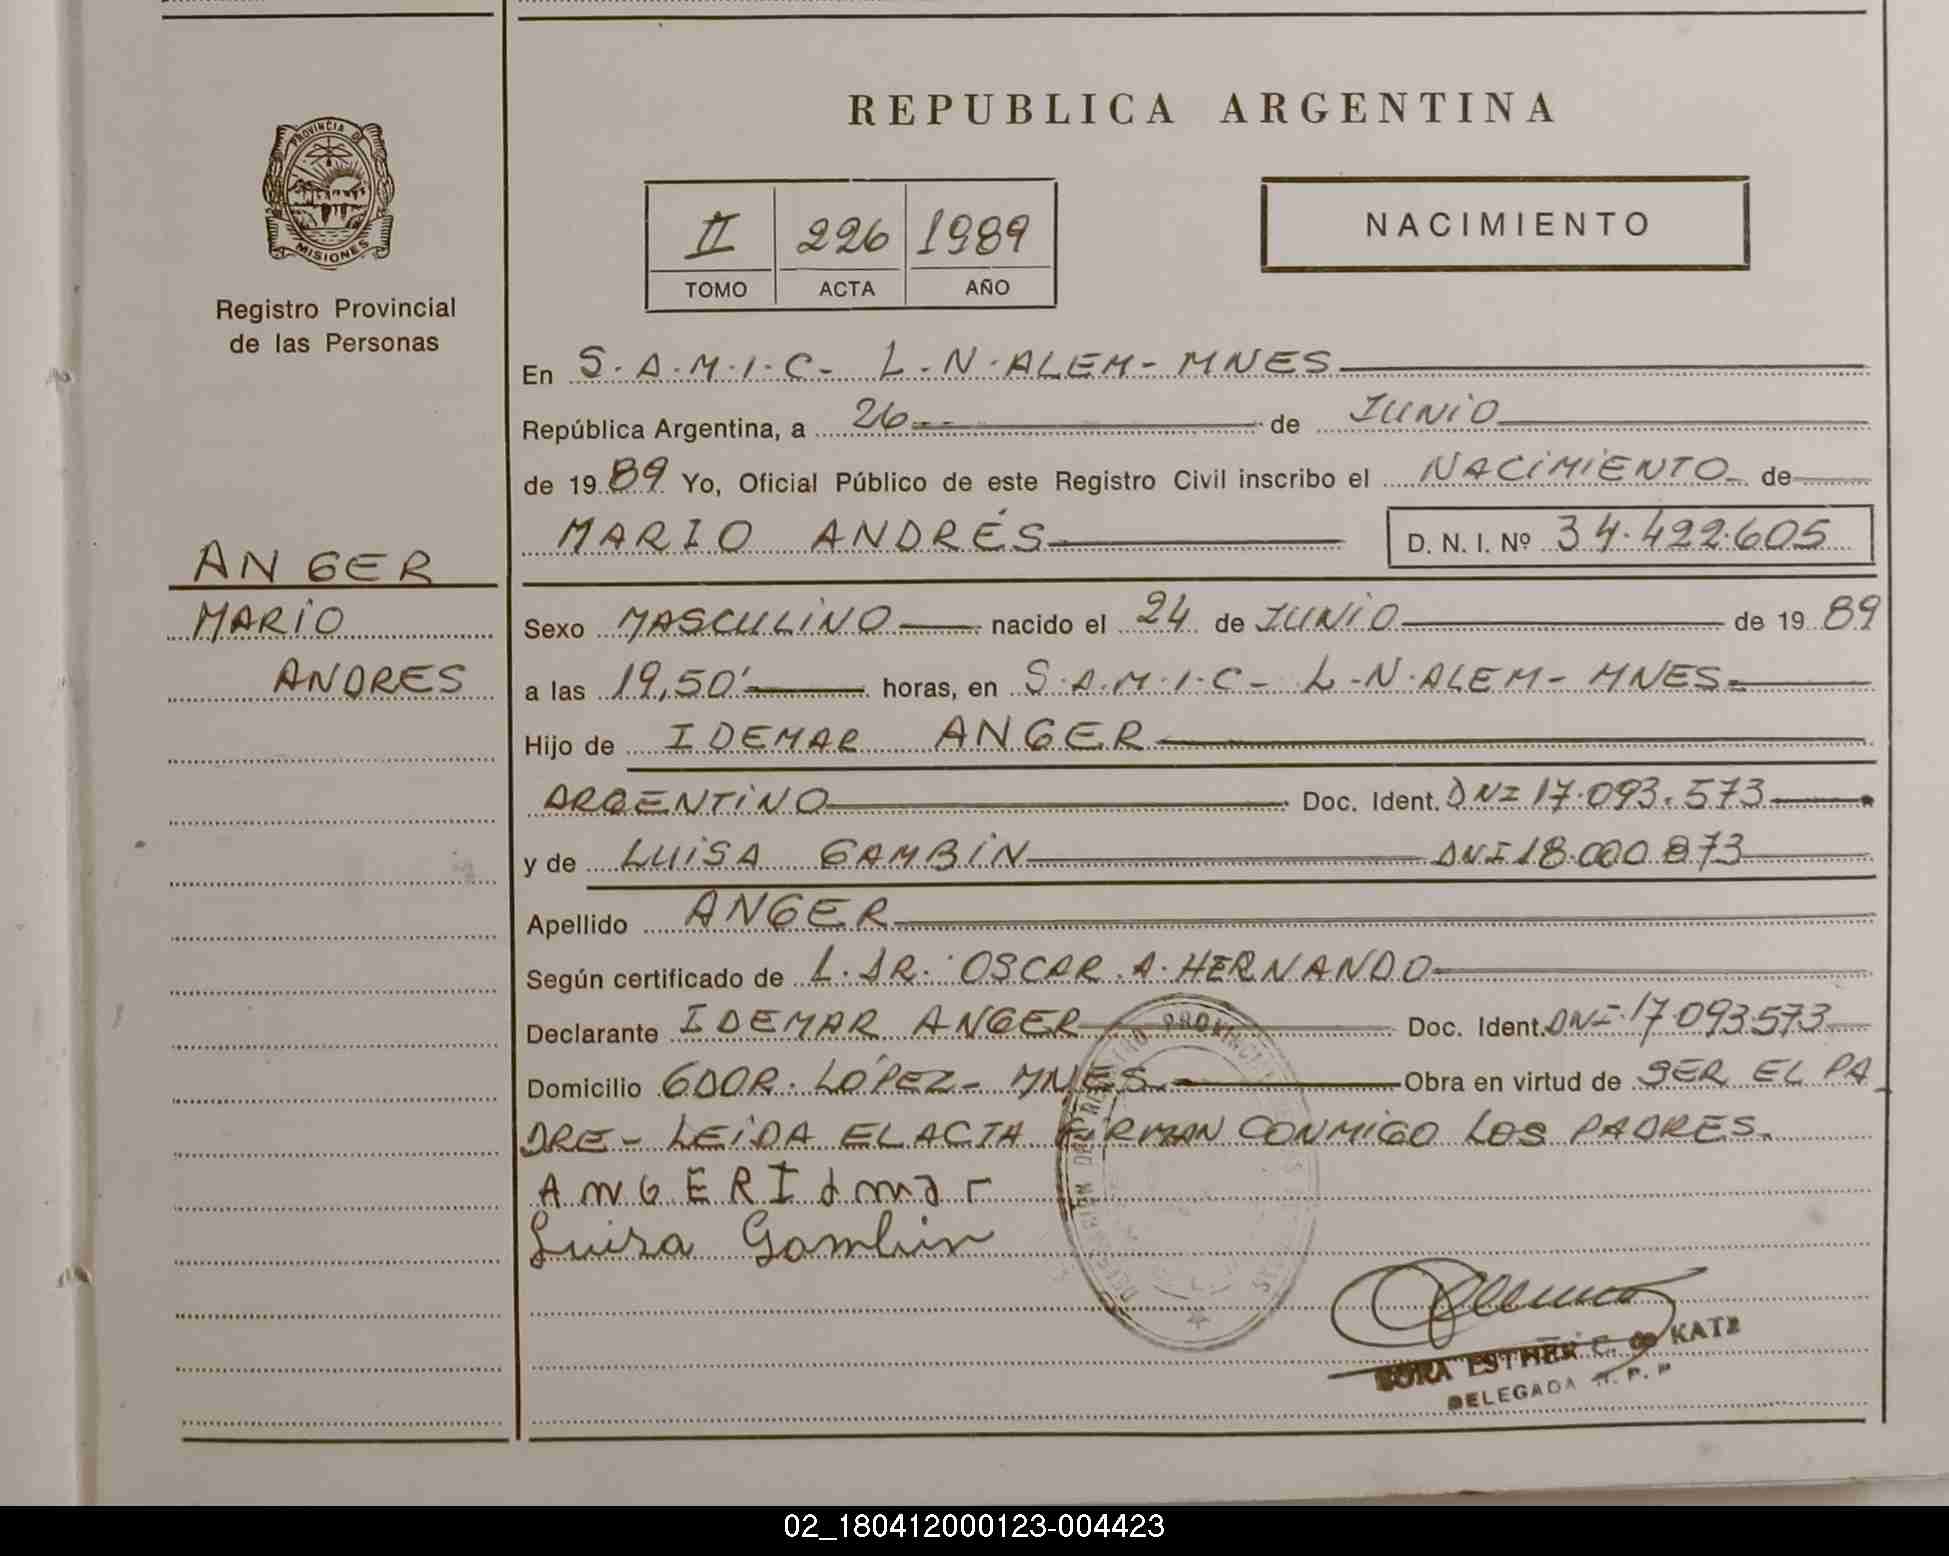 REPUBLICA ARGENTINA
PROVINCIA DE
MISIONES
Registro Provincial
de las Personas
II 226 1989
TOMO ACTA AÑO
NACIMIENTO
En S.A.M.I.C- L.N.ALEM- MNES
República Argentina, a 26 de JUNIO
de 1989 Yo, Oficial Público de este Registro Civil inscribo el NACIMIENTO de
MARIO ANDRÉS D. N. I. Nº 34.422.605
ANGER
MARIO
ANDRES
Sexo MASCULINO nacido el 24 de JUNIO de 1989
a las 19,50' horas, en S.A.M.I.C- L.N.ALEM- MNES
Hijo de IDEMAR ANGER
ARGENTINO Doc. Ident. DNI 17.093.573
y de LUISA GAMBIN DNI 18.000.873
Apellido ANGER
Según certificado de L. DR. OSCAR A. HERNANDO
Declarante IDEMAR ANGER Doc. Ident. DNI 17.093573
Domicilio GDOR. LÓPEZ- MNES Obra en virtud de SER EL PA
DRE- LEIDA EL ACTA FIRMAN CONMIGO LOS PADRES.
ANGER Idmar
Luisa Gambin
ESTHER C. de KATZ
DELEGADA R. P. P
02_180412000123-004423